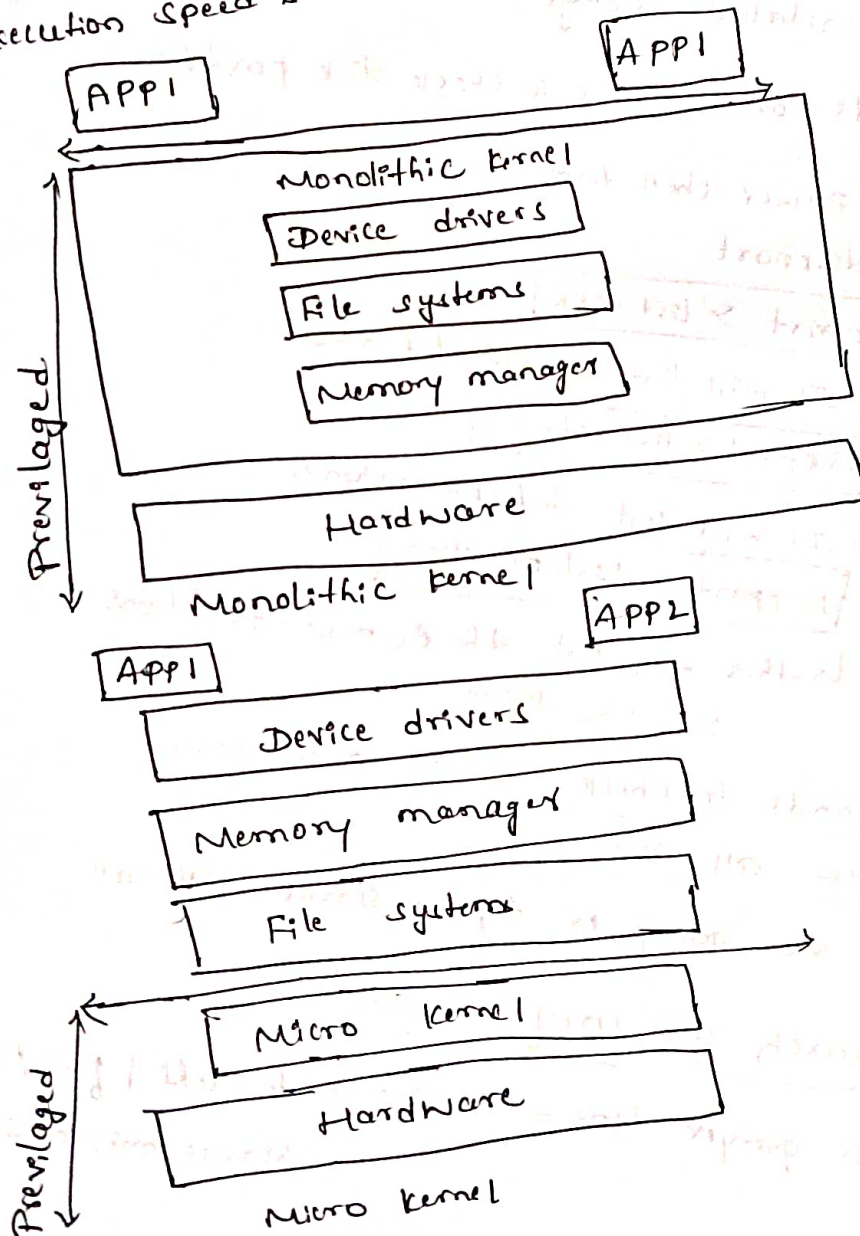 Execution speed
APP1 APP1
Monolithic kernel
Device drivers
File systems
Memory manager
Previlaged
Hardware
Monolithic kernel
APP1 APP2
Device drivers
Memory manager
File systems
Micro kernel
Previlaged
Hardware
Micro kernel